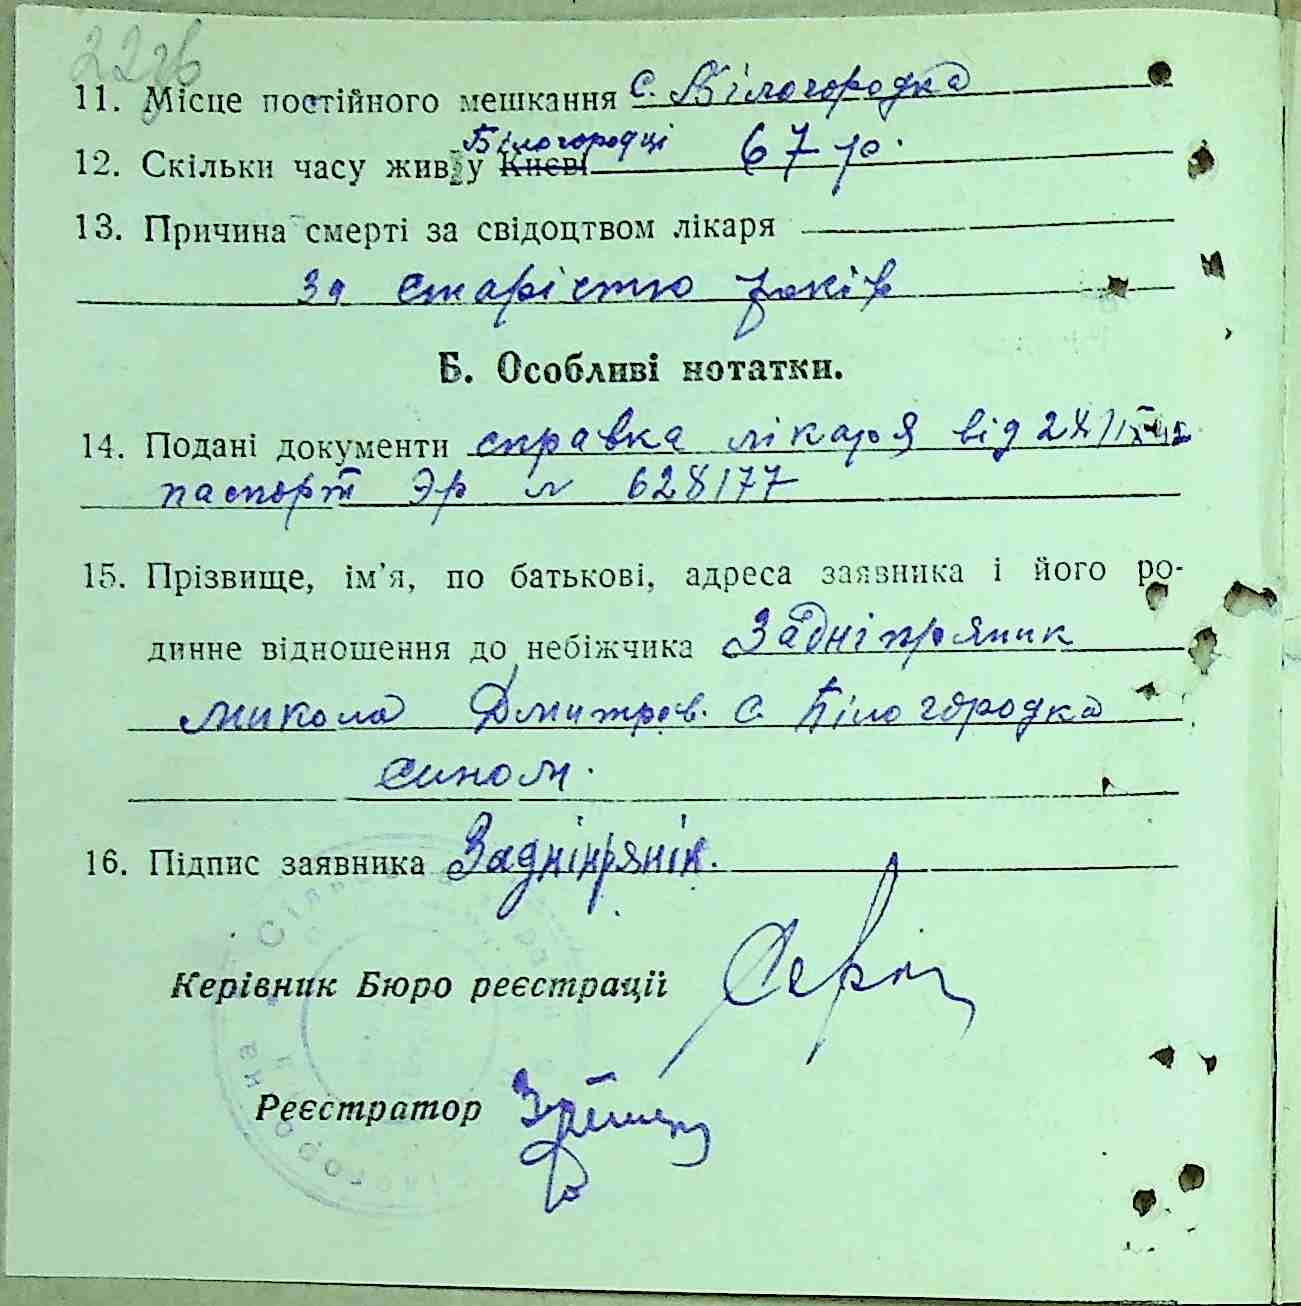 22зв
11. Місце постійного мешкання с. Білогородка
12. Скільки часу жив у Києві Білогородці 67 р.
13. Причина смерті за свідоцтвом лікаря
За старістю років
Б. Особливі нотатки.
14. Подані документи справка лікаря від
паспорт Эр № 628177
15. Прізвище, ім'я, по батькові, адреса заявника і його ро-
динне відношення до небіжчика Задніпряник
Микола Дмитров. с. Білогородка
сином.
16. Підпис заявника Задніпрянік.
Керівник Бюро реєстрації
Реєстратор